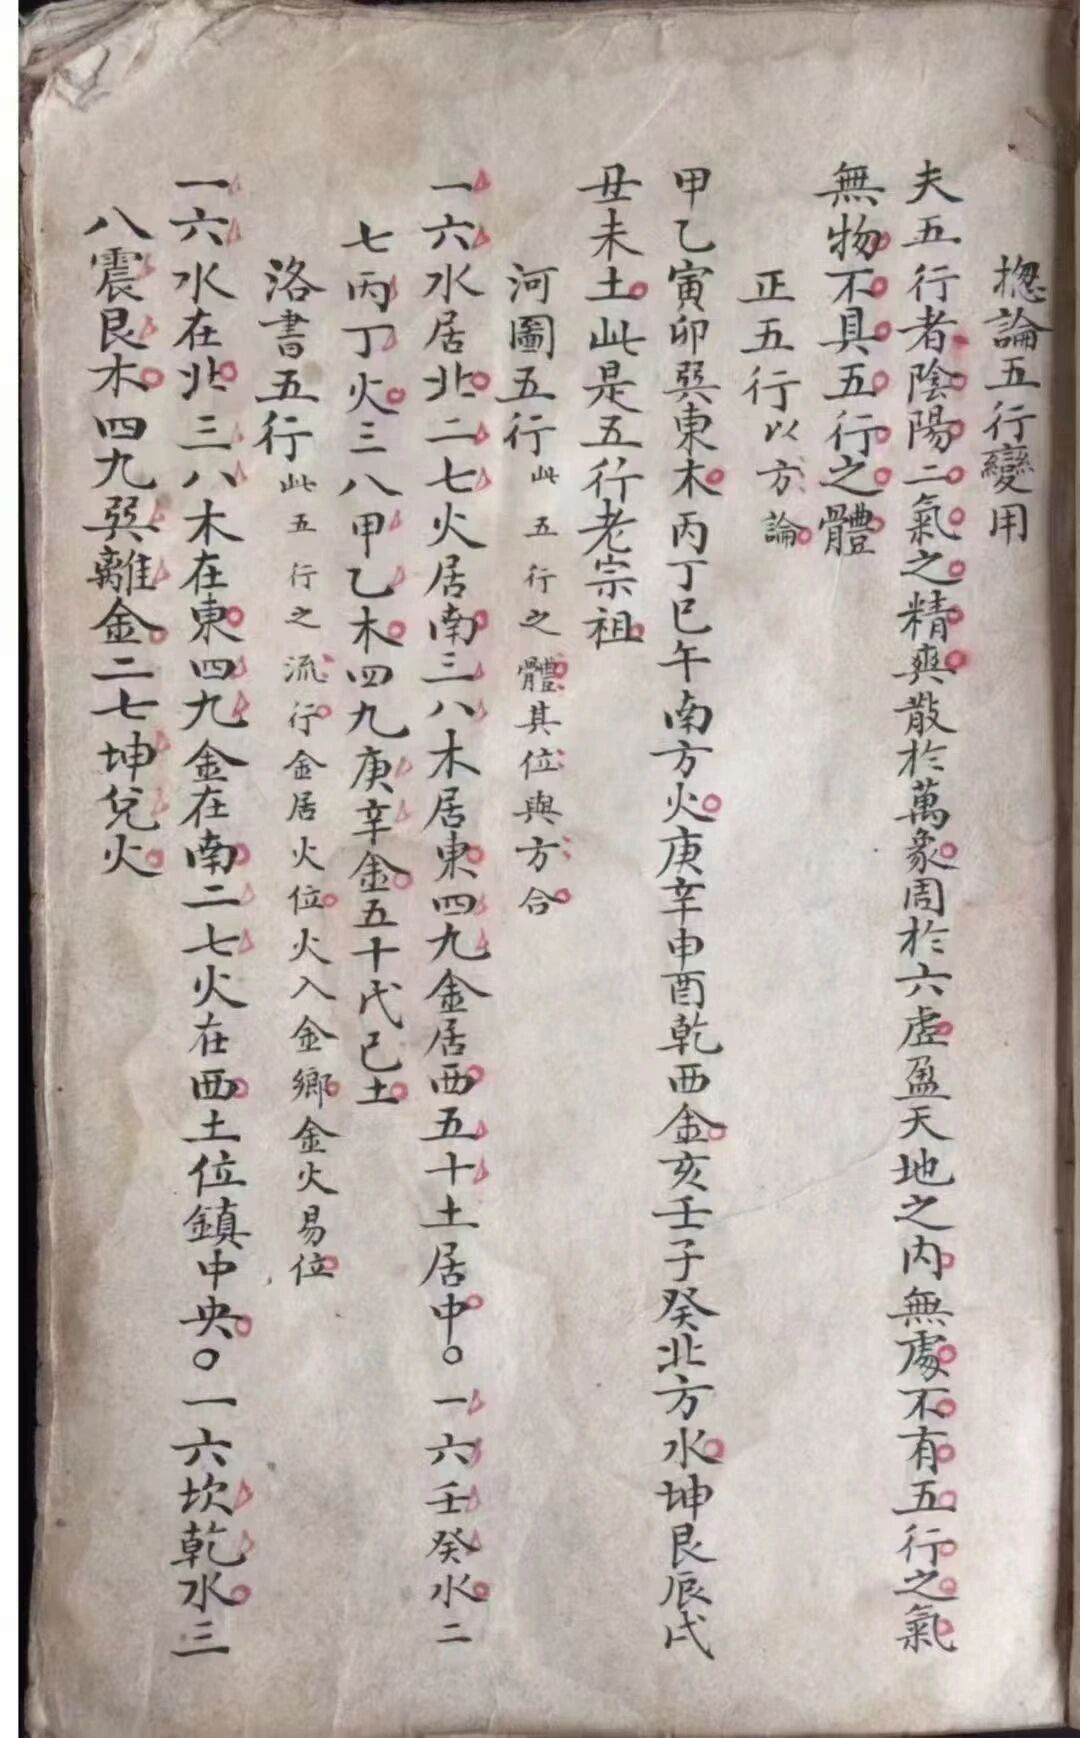 揔論五行變用
夫五行者陰陽二氣之精爽散於萬象周於六虛盈天地之內無處不有五行之氣
無物不具五行之體
正五行以方論
甲乙寅卯巽東木丙丁巳午南方火庚辛申酉乾西金亥壬子癸北方水坤艮辰戌
丑未土此是五行老宗祖
河圖五行此五行之體其位與方合
一六水居北二七火居南三八木居東四九金居西五十土居中。一六壬癸水二
七丙丁火三八甲乙木四九庚辛金五十戊己土
洛書五行此五行之流行金居火位火入金鄉金火易位
一六水在北三八木在東四九金在南二七火在西土位鎮中央。一六坎乾水三
八震艮木四九巽離金二七坤兌火